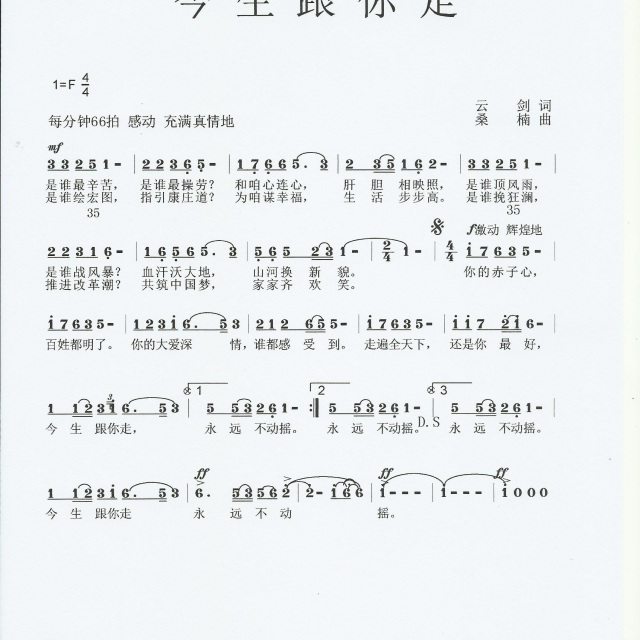 今生跟你走
1=F 4/4
云 剑 词
每分钟66拍 感动 充满真情地
桑 楠 曲
mf
3 3 2 5 1 - | 2 2 3 6 5 - | 1 7 6 6 5 . 3 | 2 3 5 1 6 2 - | 3 3 2 5 1 - |
是谁最辛苦， 是谁最操劳？ 和咱心连心， 肝 胆 相映照， 是谁顶风雨，
是谁绘宏图， 指引康庄道？ 为咱谋幸福， 生 活 步步高。 是谁挽狂澜，
35 35
f激动 辉煌地
2 2 3 1 6 - | 1 6 5 6 5 . 5 3 | 5 6 5 2 3 1 - | 2/4 1 - | 4/4 1 7 6 3 5 - |
是谁战风暴？ 血汗沃大地， 山河换 新 貌。 你的赤子心，
推进改革潮？ 共筑中国梦， 家家齐 欢 笑。
1 7 6 3 5 - | 1 2 3 1 6 . 5 3 | 2 1 2 6 5 5 - | 1 7 6 3 5 - | 1 1 7 2 1 6 - |
百姓都明了。 你的大爱深 情，谁都感 受 到。 走遍全天下， 还是你 最 好，
1 2
3
3
1 1 2 3 1 6 . 5 3 | 5 5 3 2 6 1 - :‖ 5 5 3 2 6 1 - | 5 5 3 2 6 1 - |
D.S
今 生 跟你走， 永 远 不动摇。 永 远 不动摇。 永 远 不动摇。
ff ff ff
1 1 2 3 1 6 . 5 3 | 6 . 5 3 5 6 2 | 2 - 1 6 6 | 1 - - - | 1 - - - | 1 0 0 0
今 生 跟你走 永 远 不 动 摇。